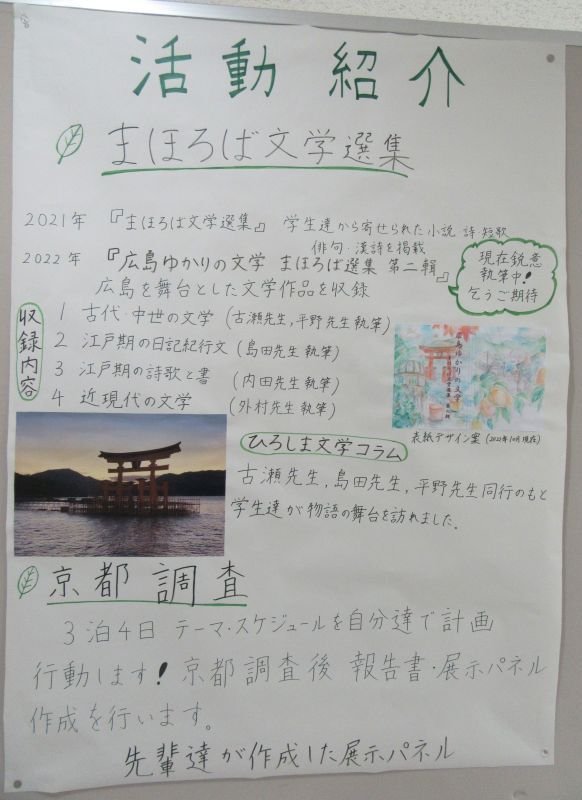 活動 紹介
まほろば文学選集
2021年 『まほろば文学選集』 学生達から寄せられた小説 詩 短歌
俳句・漢詩を掲載
2022年 『広島ゆかりの文学 まほろば選集 第二輯』
広島を舞台とした文学作品を収録
現在鋭意
執筆中!
乞うご期待
収録内容
1 古代・中世の文学 (古瀬先生,平野先生執筆)
2 江戸期の日記紀行文 (島田先生執筆)
3 江戸期の詩歌と書 (内田先生執筆)
4 近現代の文学 (外村先生執筆)
広島ゆかりの文学
表紙デザイン案 (2022年10月現在)
ひろしま文学コラム
古瀬先生,島田先生,平野先生同行のもと
学生達が物語の舞台を訪れました.
京都調査
3泊4日 テーマ・スケジュールを自分達で計画
行動します! 京都調査後 報告書・展示パネル
作成を行います。
先輩達が作成した展示パネル